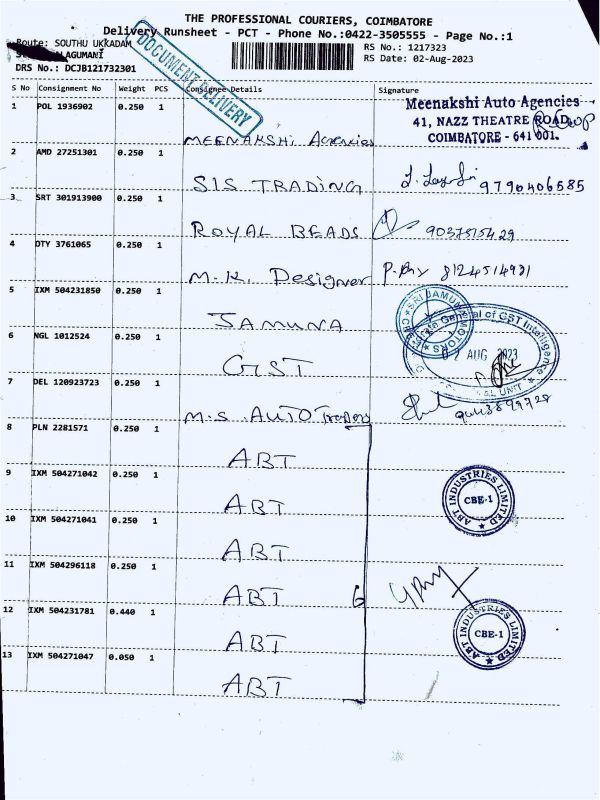 THE PROFESSIONAL COURIERS, COIMBATORE
Delivery Runsheet - PCT - Phone No.:0422-3505555 - Page No.:1
Route: SOUTHU UKKADAM
RS No.: 1217323
ALAGUMANI
RS Date: 02-Aug-2023
DRS No.: DCJB121732301
DOCUMENT DELIVERY
S No Consignment No Weight PCS Consignee Details Signature
1 POL 1936902 0.250 1 MEENAKSHI Agencies
Meenakshi Auto Agencies
41, NAZZ THEATRE ROAD,
COIMBATORE - 641 001.
2 AMD 27251301 0.250 1 SIS TRADING 9790406585
3 SRT 301913900 0.250 1 ROYAL BEADS 9037515429
4 OTY 3761065 0.250 1 M.K. Designer 8124514931
5 IXM 504231850 0.250 1 JAMUNA
SRI JAMUNA MOTORS
6 NGL 1012524 0.250 1 GST
General of GST Intelligence
AUG 2023
UNIT
7 DEL 120923723 0.250 1 M.S AUTO Traders
8 PLN 2281571 0.250 1 ABT
9 IXM 504271042 0.250 1 ABT
ABT INDUSTRIES LIMITED
CBE-1
10 IXM 504271041 0.250 1 ABT
11 IXM 504296118 0.250 1 ABT 6
12 IXM 504231781 0.440 1 ABT
ABT INDUSTRIES LIMITED
CBE-1
13 IXM 504271047 0.050 1 ABT